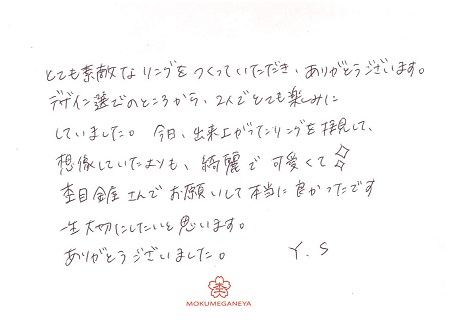 とても素敵なリングをつくっていただき、ありがとうございます。
デザイン選びのところから、2人でとても楽しみに
していました。今日、出来上がったリングを拝見して、
想像していたよりも、綺麗で可愛くて✧✧
杢目金屋さんでお願いして本当に良かったです
一生大切にしたいと思います。
ありがとうございました。 Y.S
杢
MOKUMEGANEYA